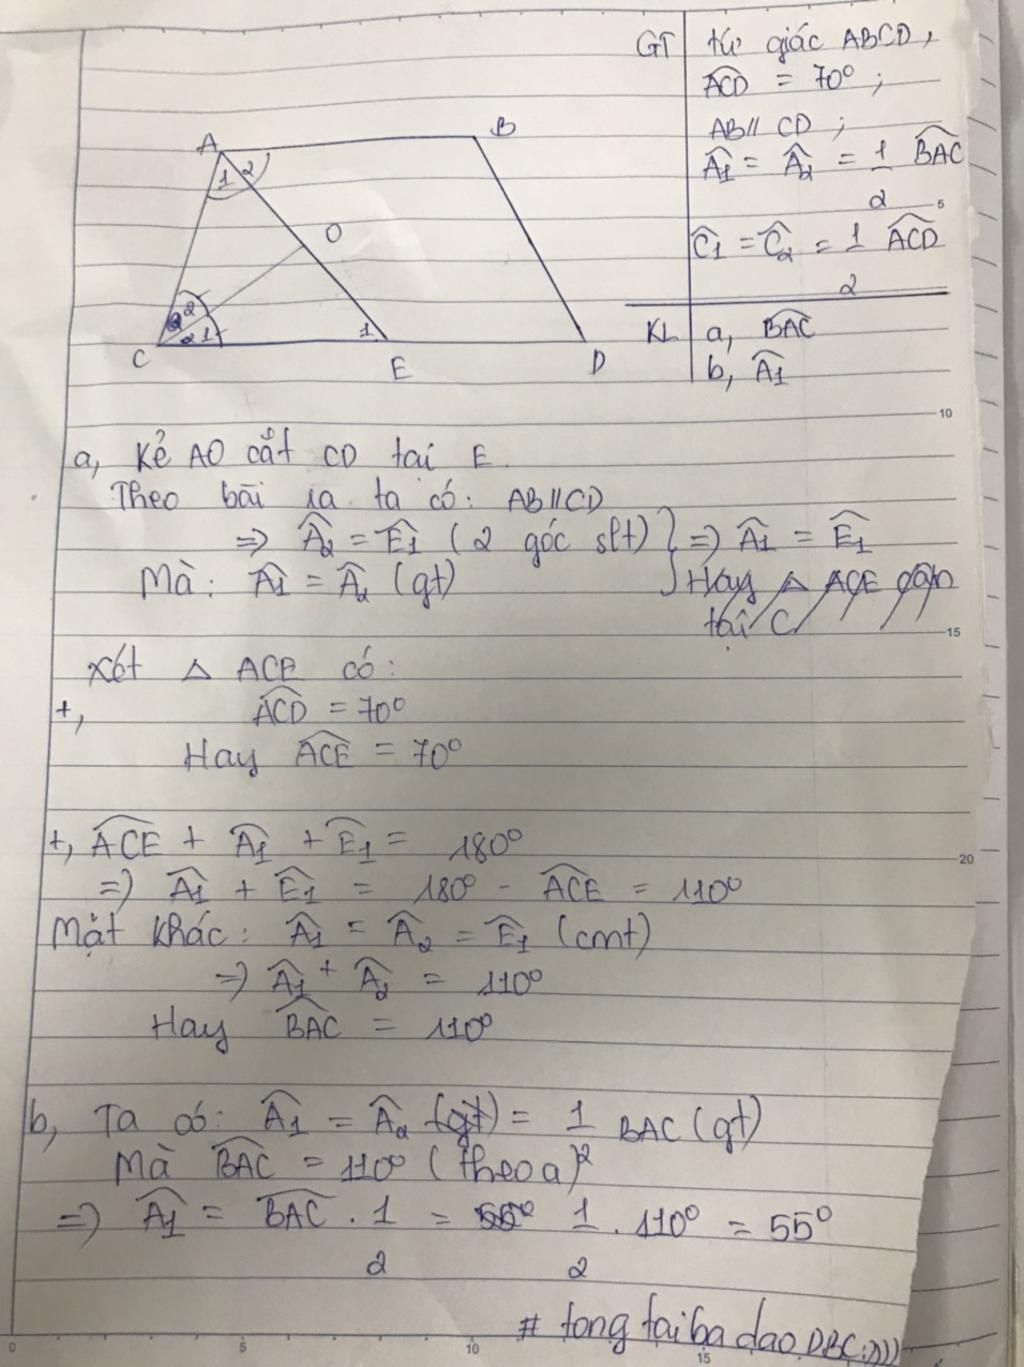 GT tứ giác ABCD,
ACD = 70°;
AB // CD;
A1 = A2 = 1/2 BAC
C1 = C2 = 1/2 ACD
KL a, BAC
b, A1
A B
1 2
O
2
2 1 1
C E D
a, Kẻ AO cắt CD tại E.
Theo bài ra ta có: AB // CD
=> A2 = E1 (2 góc slt) } => A1 = E1
Mà: A1 = A2 (gt) Hay △ ACE cân
tại C
Xét △ ACE có:
+, ACD = 70°
Hay ACE = 70°
+, ACE + A1 + E1 = 180°
=> A1 + E1 = 180° - ACE = 110°
Mặt khác: A1 = A2 = E1 (cmt)
=> A1 + A2 = 110°
Hay BAC = 110°
b, Ta có: A1 = A2 (gt) = 1/2 BAC (gt)
Mà BAC = 110° (theo a)
=> A1 = BAC . 1/2 = 55° 1/2 . 110° = 55°
# tongtaibadao DBC:)))
0 5 10 15
5
10
15
20